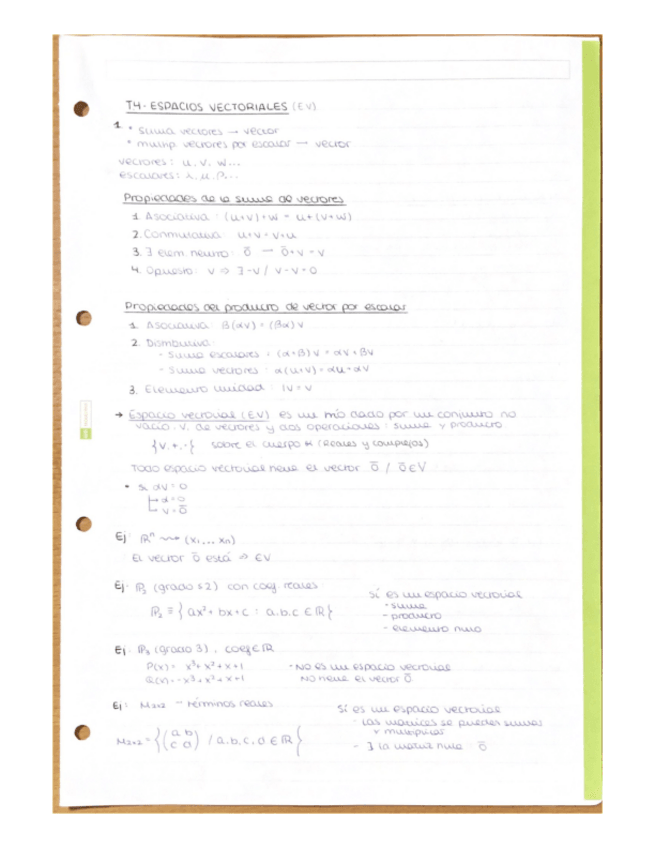 T4- ESPACIOS VECTORIALES (EV)
1 • suma vectores → vector
• multip. vectores por escalar → vector
vectores: u, v, w...
escalares: λ, μ, β...
Propiedades de la suma de vectores
1. Asociativa: (u+v)+w = u+(v+w)
2. Conmutativa: u+v = v+u
3. ∃ elem neutro: 0̄ → 0̄+v = v
4. Opuesto: v ⇒ ∃ -v / v-v=0
Propiedades del producto de vector por escalar
1. Asociativa: β(αv) = (βα)v
2. Distributiva:
- Suma escalares: (α+β)v = αv+βv
- Suma vectores: α(u+v) = αu+αv
3. Elemento unidad: 1v=v
→ Espacio vectorial (EV) es un trío dado por un conjunto no
vacío, V, de vectores y dos operaciones: suma y producto
{V,+,·} sobre el cuerpo K (Reales y complejos)
Todo espacio vectorial tiene el vector 0̄ / 0̄∈V
• Si αv=0
α=0
v=0̄
Ej: ℝⁿ ⇝ (x₁...xₙ)
El vector 0̄ está ⇒ EV
Ej: ℙ₂ (grado ≤2) con coef reales:
ℙ₂ ≡ {ax²+bx+c : a,b,c ∈ ℝ}
SÍ es un espacio vectorial
- suma
- producto
- elemento nulo
Ej: ℙ₃ (grado 3), coef∈ℝ
P(x) = x³+x²+x+1
Q(x) = -x³+x²+x+1
- NO es un espacio vectorial
NO tiene el vector 0̄
Ej: M₂ₓ₂ - términos reales
M₂ₓ₂ = {(a b
c d) / a,b,c,d ∈ ℝ}
SÍ es un espacio vectorial
- Las matrices se pueden sumar
y multiplicar
- ∃ la matriz nula: 0̄